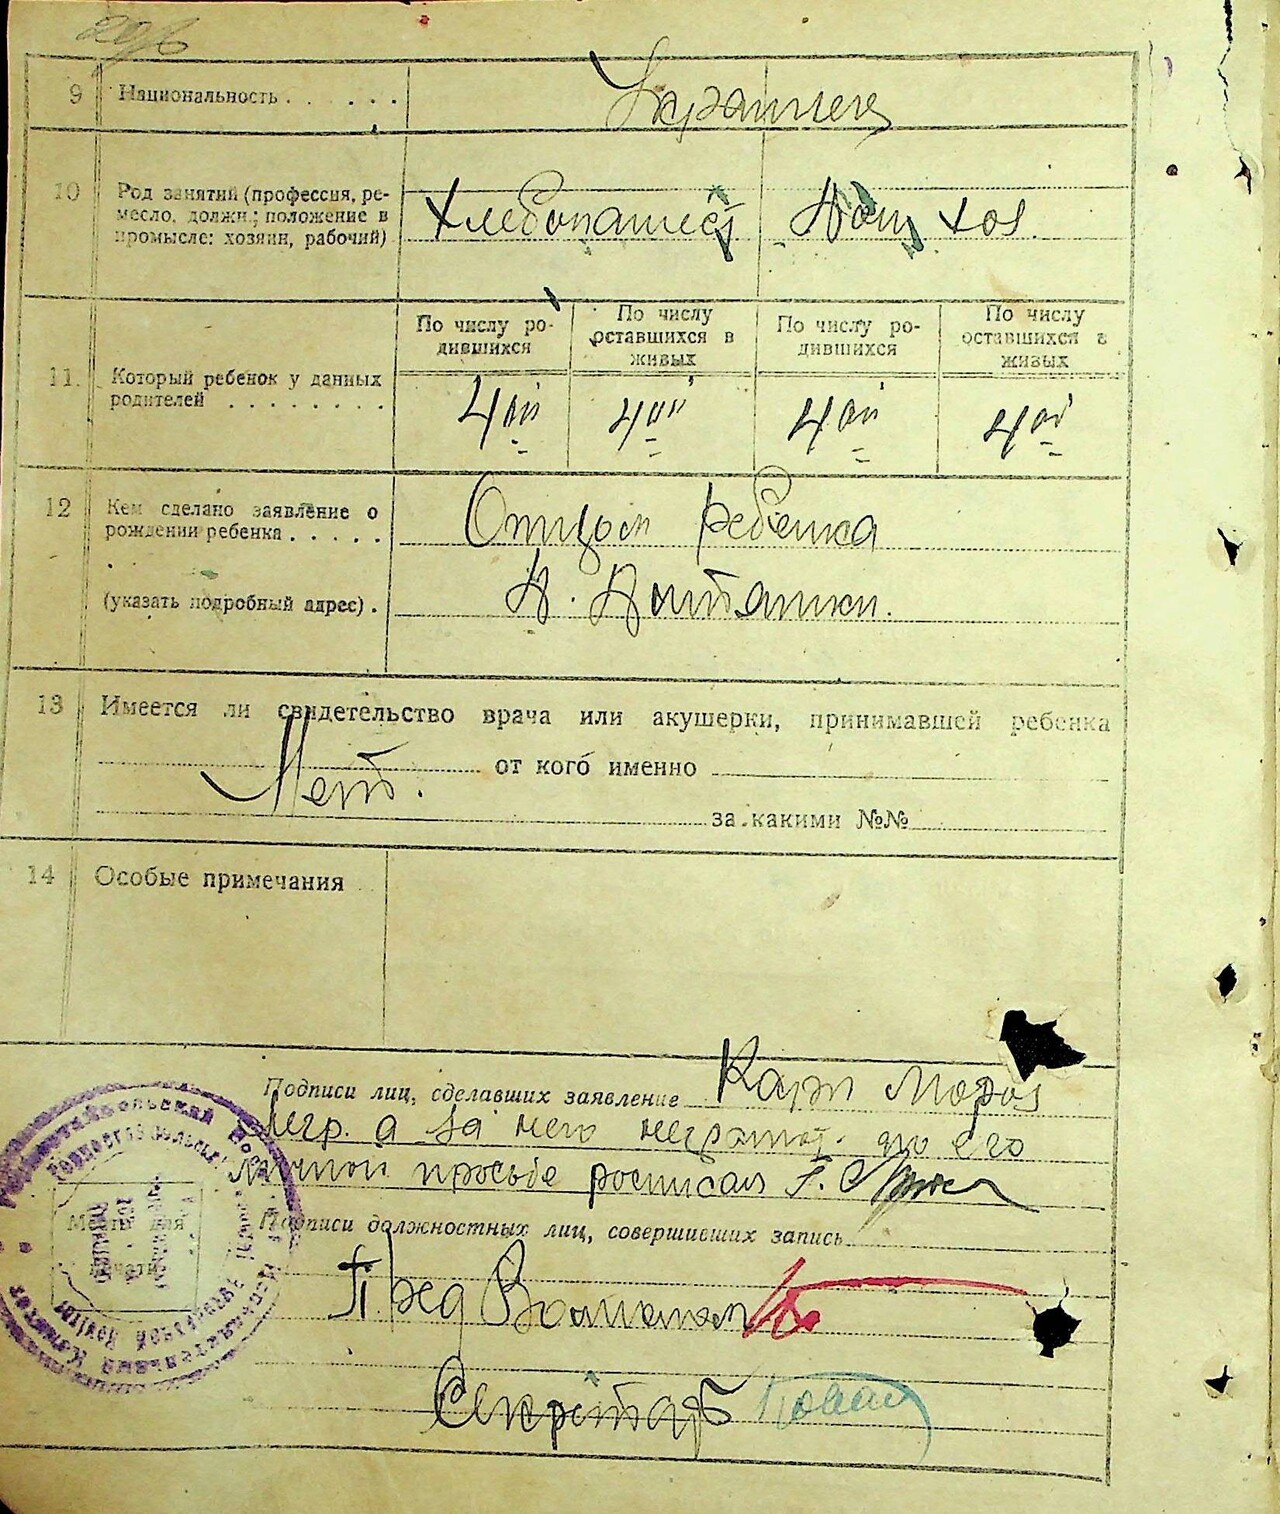 9 Национальность . . . . . .
Украинец
10 Род занятий (профессия, ре-
месло, должн.; положение в
промысле: хозяин, рабочий)
Хлебопашест Дом хоз.
По числу ро-
дившихся
По числу
оставшихся в
живых
По числу ро-
дившихся
По числу
оставшихся в
живых
11. Который ребенок у данных
родителей . . . . . . . .
4ый 4ый 4ый 4ый
12 Кем сделано заявление о
рождении ребенка . . . . .
Отцом ребенка
(указать подробный адрес) .
13 Имеется ли свидетельство врача или акушерки, принимавшей ребенка
Нет. от кого именно
за какими №№
14 Особые примечания
Подписи лиц, сделавших заявление Карп Мороз
негр. а за него неграмот. по его
личной просьбе росписал
Подписи должностных лиц, совершивших запись
Место для
печати
Пред
Секретарь